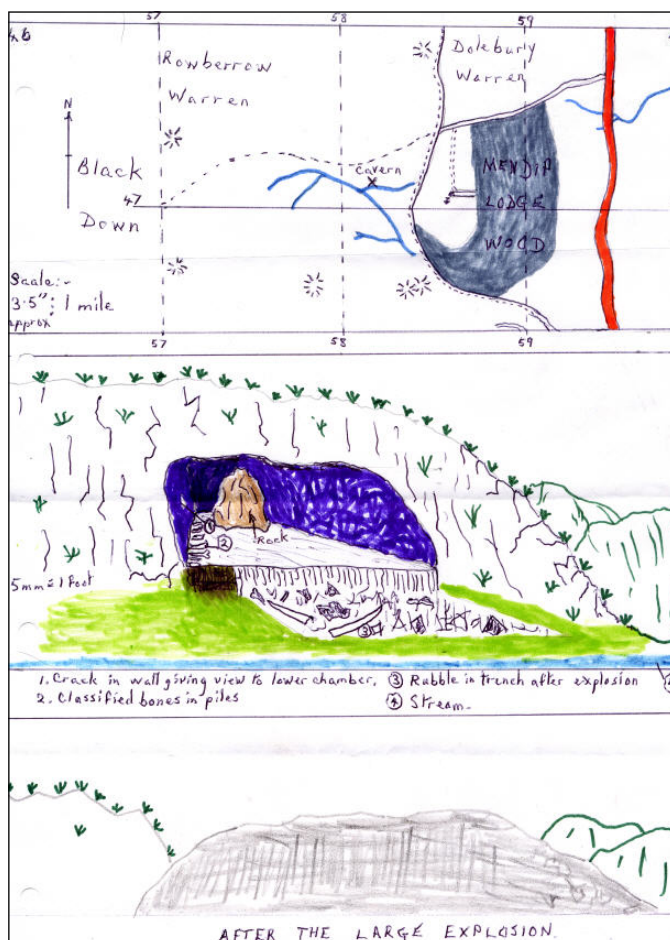 57 58 59
46
Rowberrow
Warren
Dolebury
Warren
N
A
Black
Down
Cavern
X
47
MENDIP
LODGE
WOOD
Scale:-
3.5": 1 mile
approx
57 58 59
1
2
Rock
5mm = 1 foot
3
1. Crack in wall giving view to lower chamber.
2. Classified bones in piles
3 Rubble in trench after explosion
4 Stream.
AFTER THE LARGE EXPLOSION.